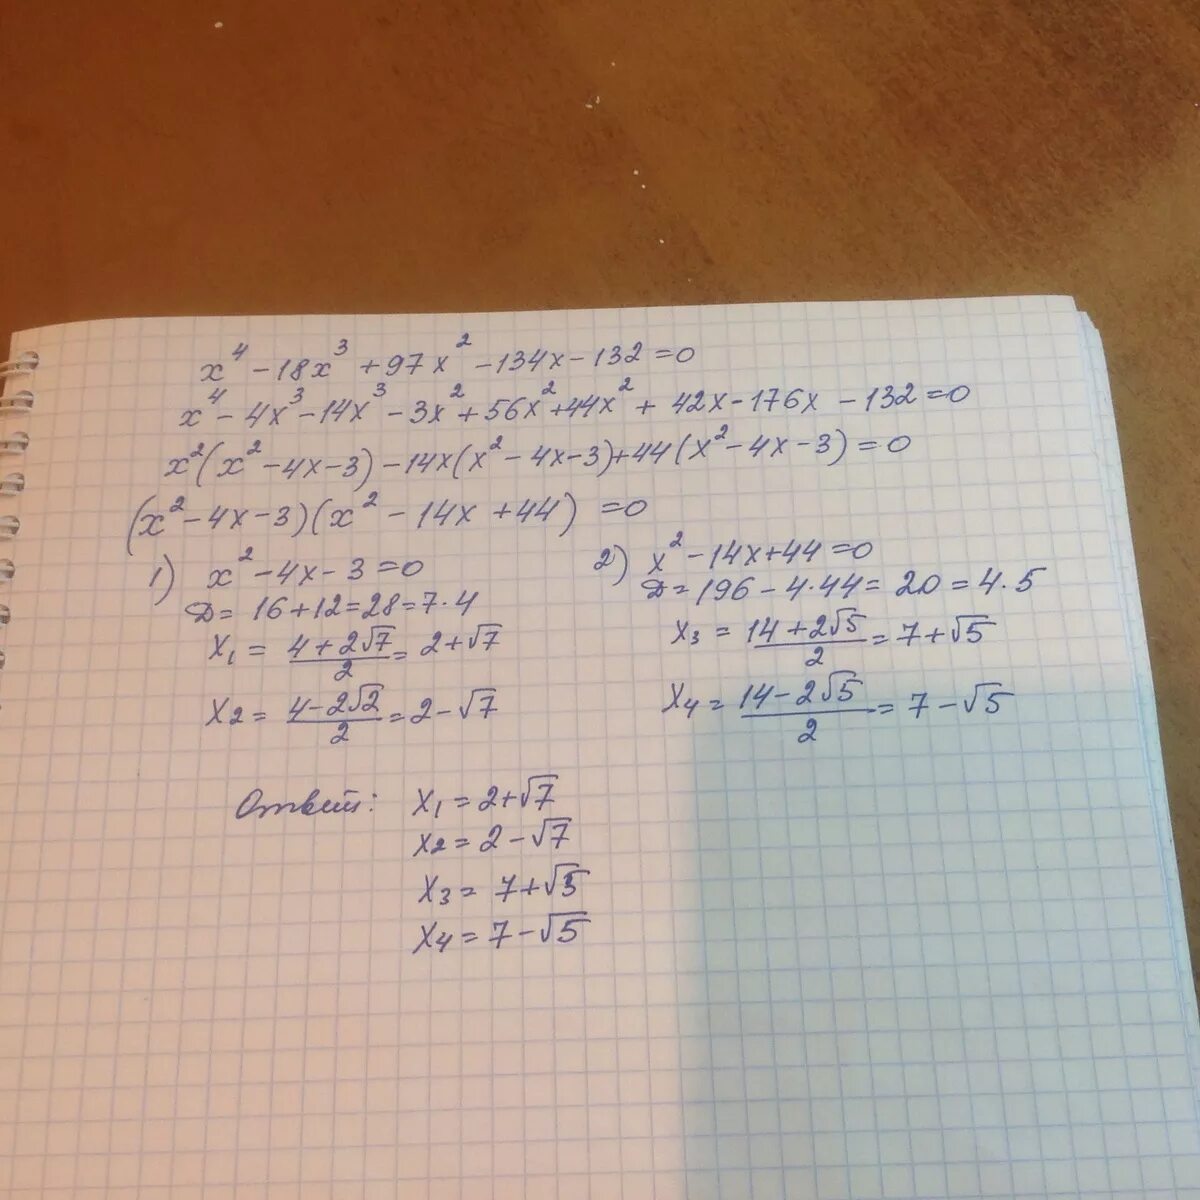 x⁴ - 18x³ + 97x² - 134x - 132 = 0
x⁴ - 4x³ - 14x³ - 3x² + 56x² + 44x² + 42x - 176x - 132 = 0
x²(x² - 4x - 3) - 14x(x² - 4x - 3) + 44(x² - 4x - 3) = 0
(x² - 4x - 3)(x² - 14x + 44) = 0
1) x² - 4x - 3 = 0
D = 16 + 12 = 28 = 7·4
x₁ = (4 + 2√7)/2 = 2 + √7
x₂ = (4 - 2√2)/2 = 2 - √7
2) x² - 14x + 44 = 0
D = 196 - 4·44 = 20 = 4·5
x₃ = (14 + 2√5)/2 = 7 + √5
x₄ = (14 - 2√5)/2 = 7 - √5
Ответ: x₁ = 2 + √7
x₂ = 2 - √7
x₃ = 7 + √5
x₄ = 7 - √5